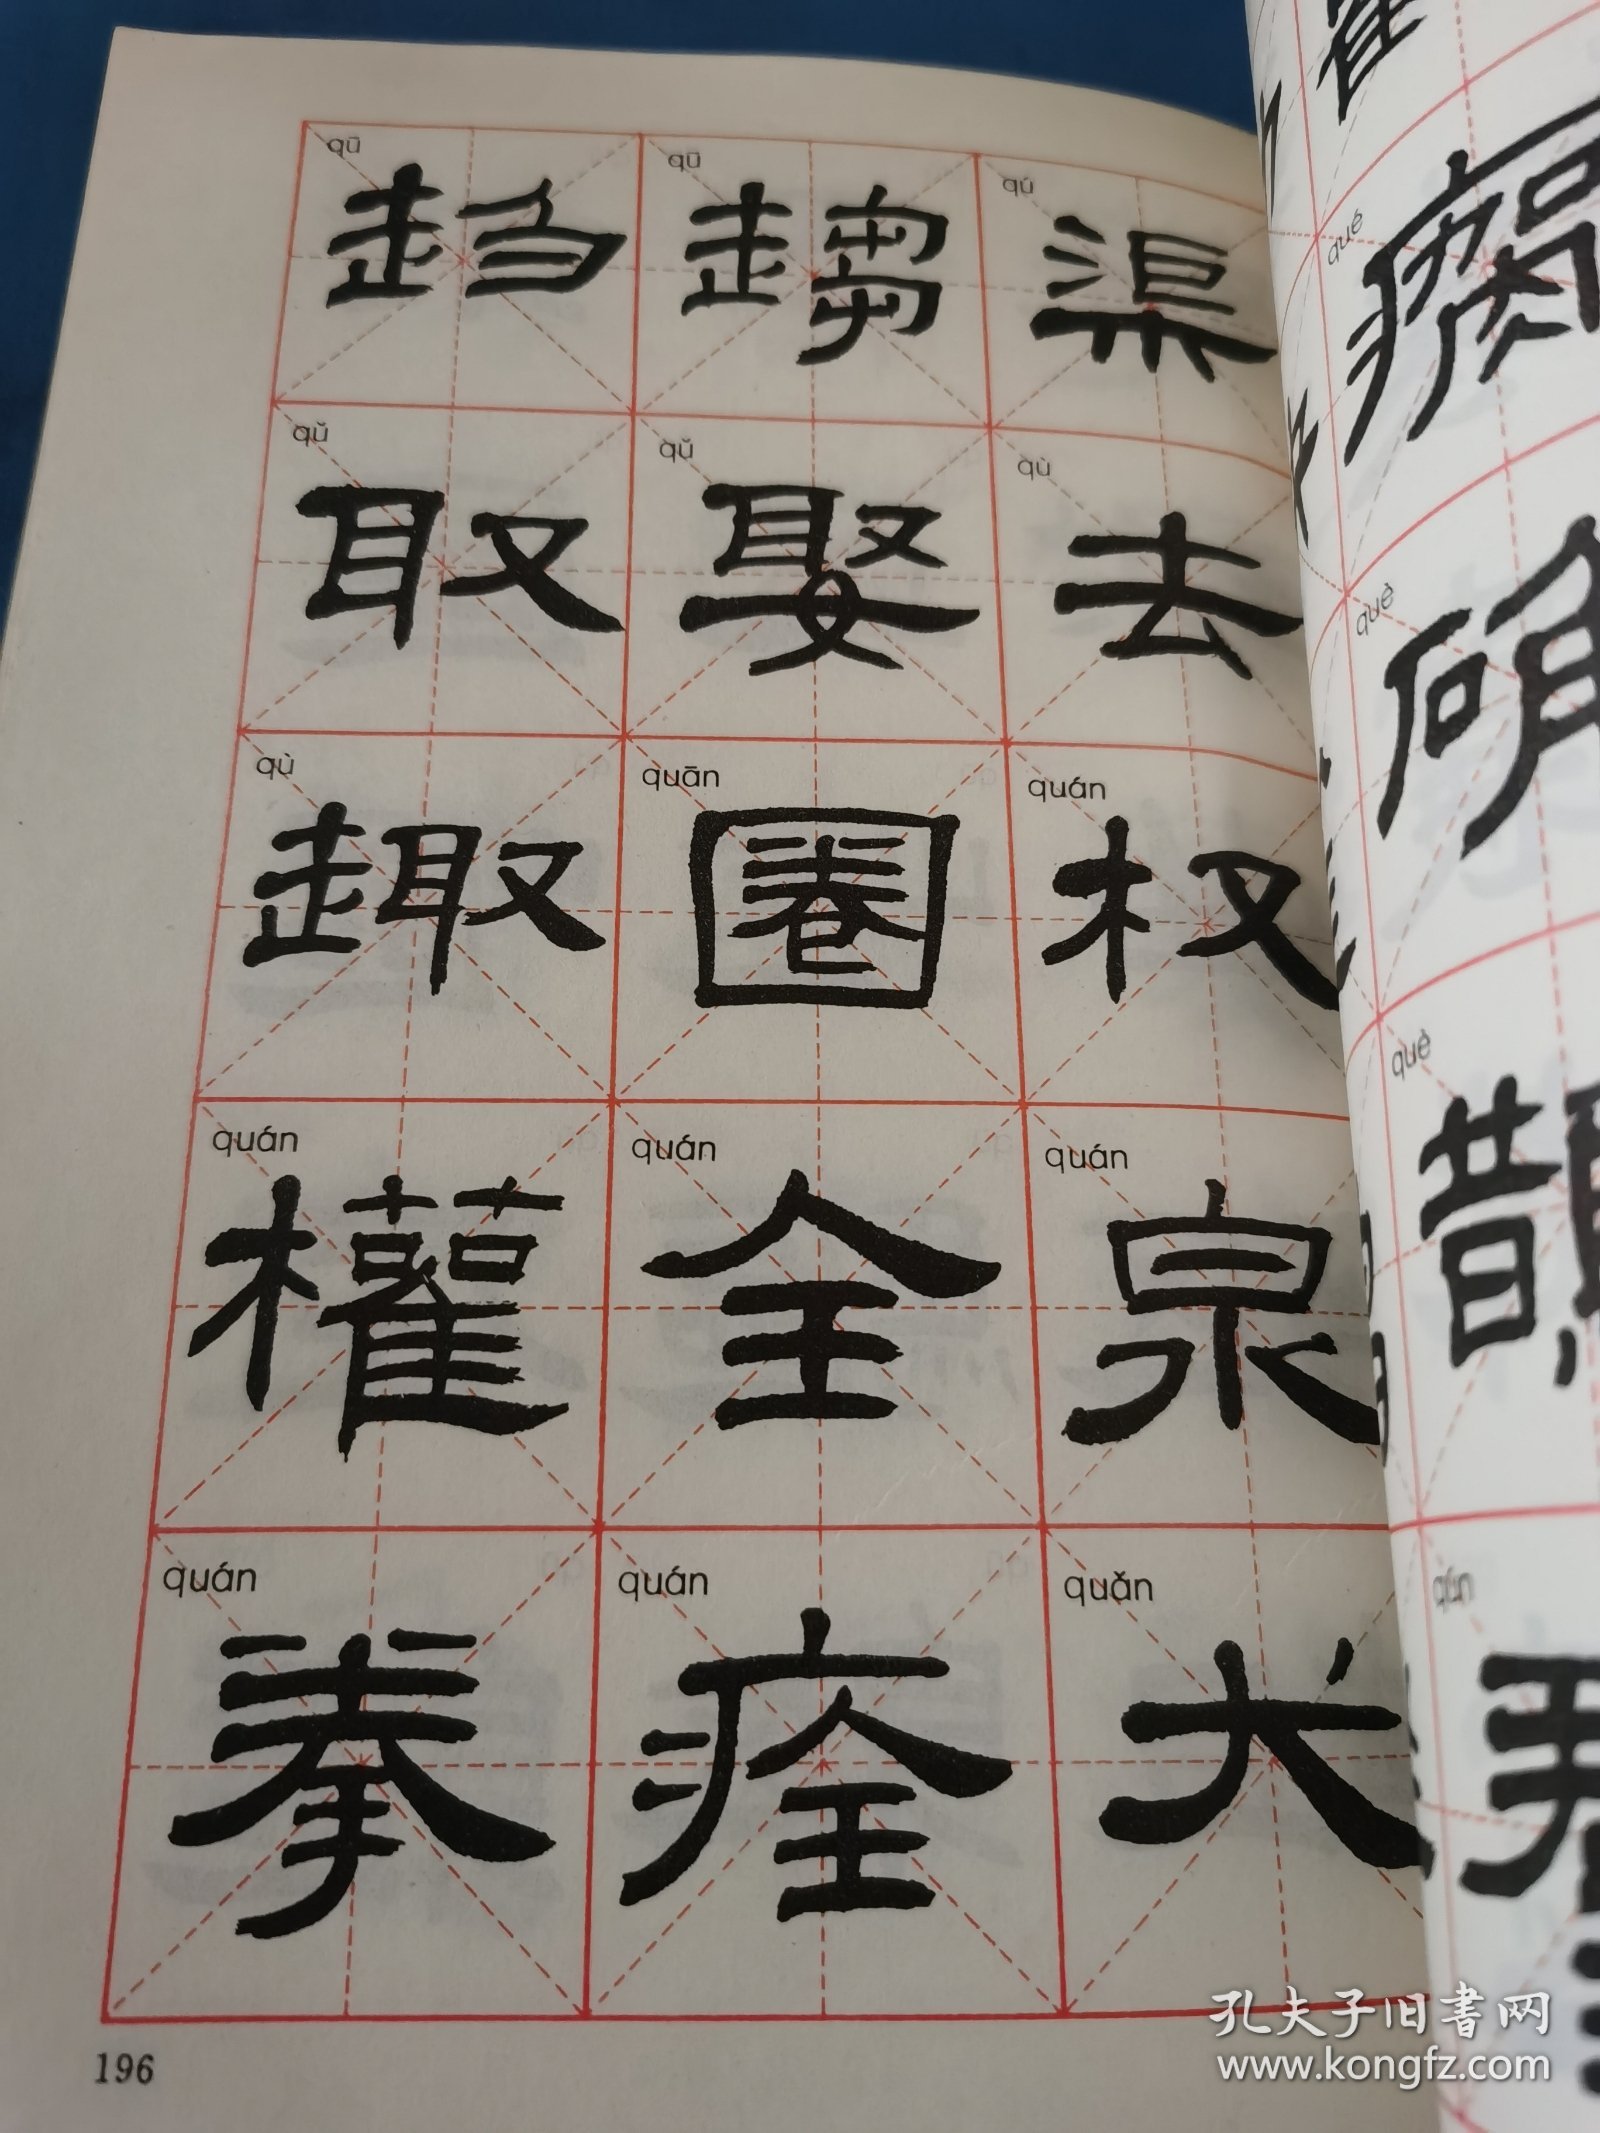 qū qū qú
趋 趨 渠
qǔ qǔ qù
取 娶 去
qù quān quán
趣 圈 权
quán quán quán
權 全 泉
quán quán quǎn
拳 痊 犬
196
qué
瘸
què
确
què
鵲
qún
孔夫子旧书网
www.kongfz.com